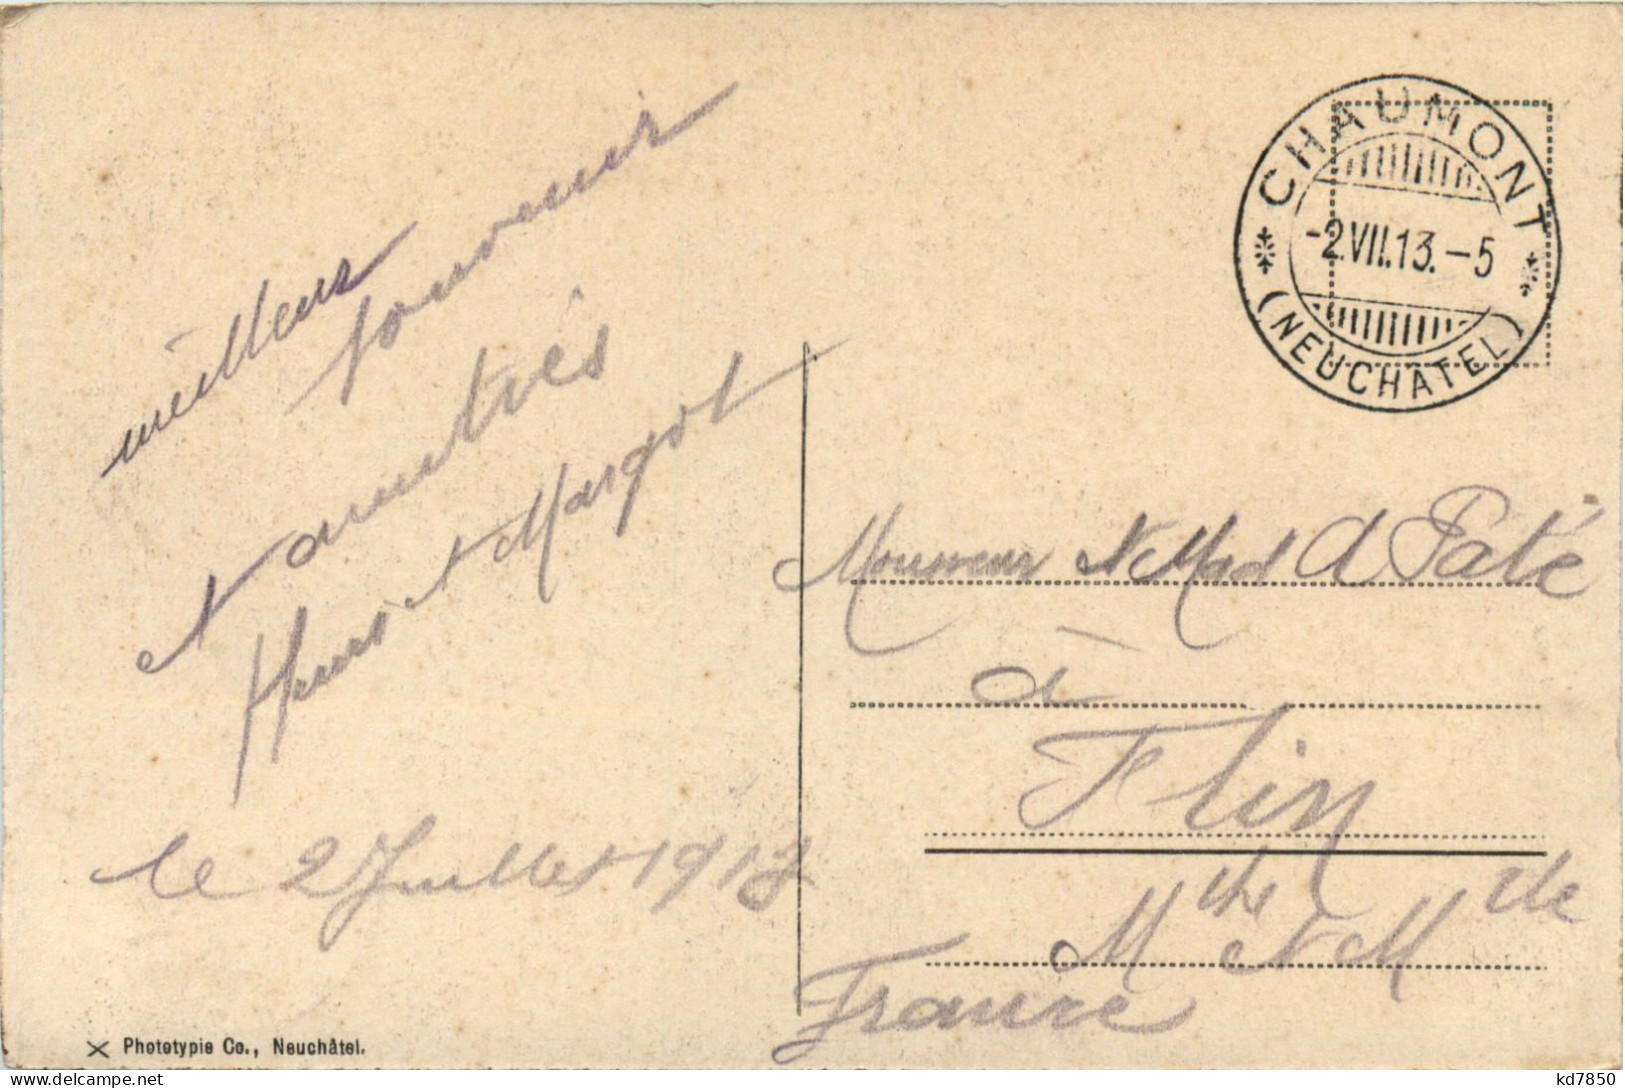 meilleur
souvenir
et amitiés
Henri et Margot
le 2 Juillet 1913
CHAUMONT
-2.VII.13.-5
(NEUCHATEL)
Monsieur et Mad A Paté
à
Flin
Mthe et Mlle
France
Phototypie Co., Neuchâtel.
kd7850